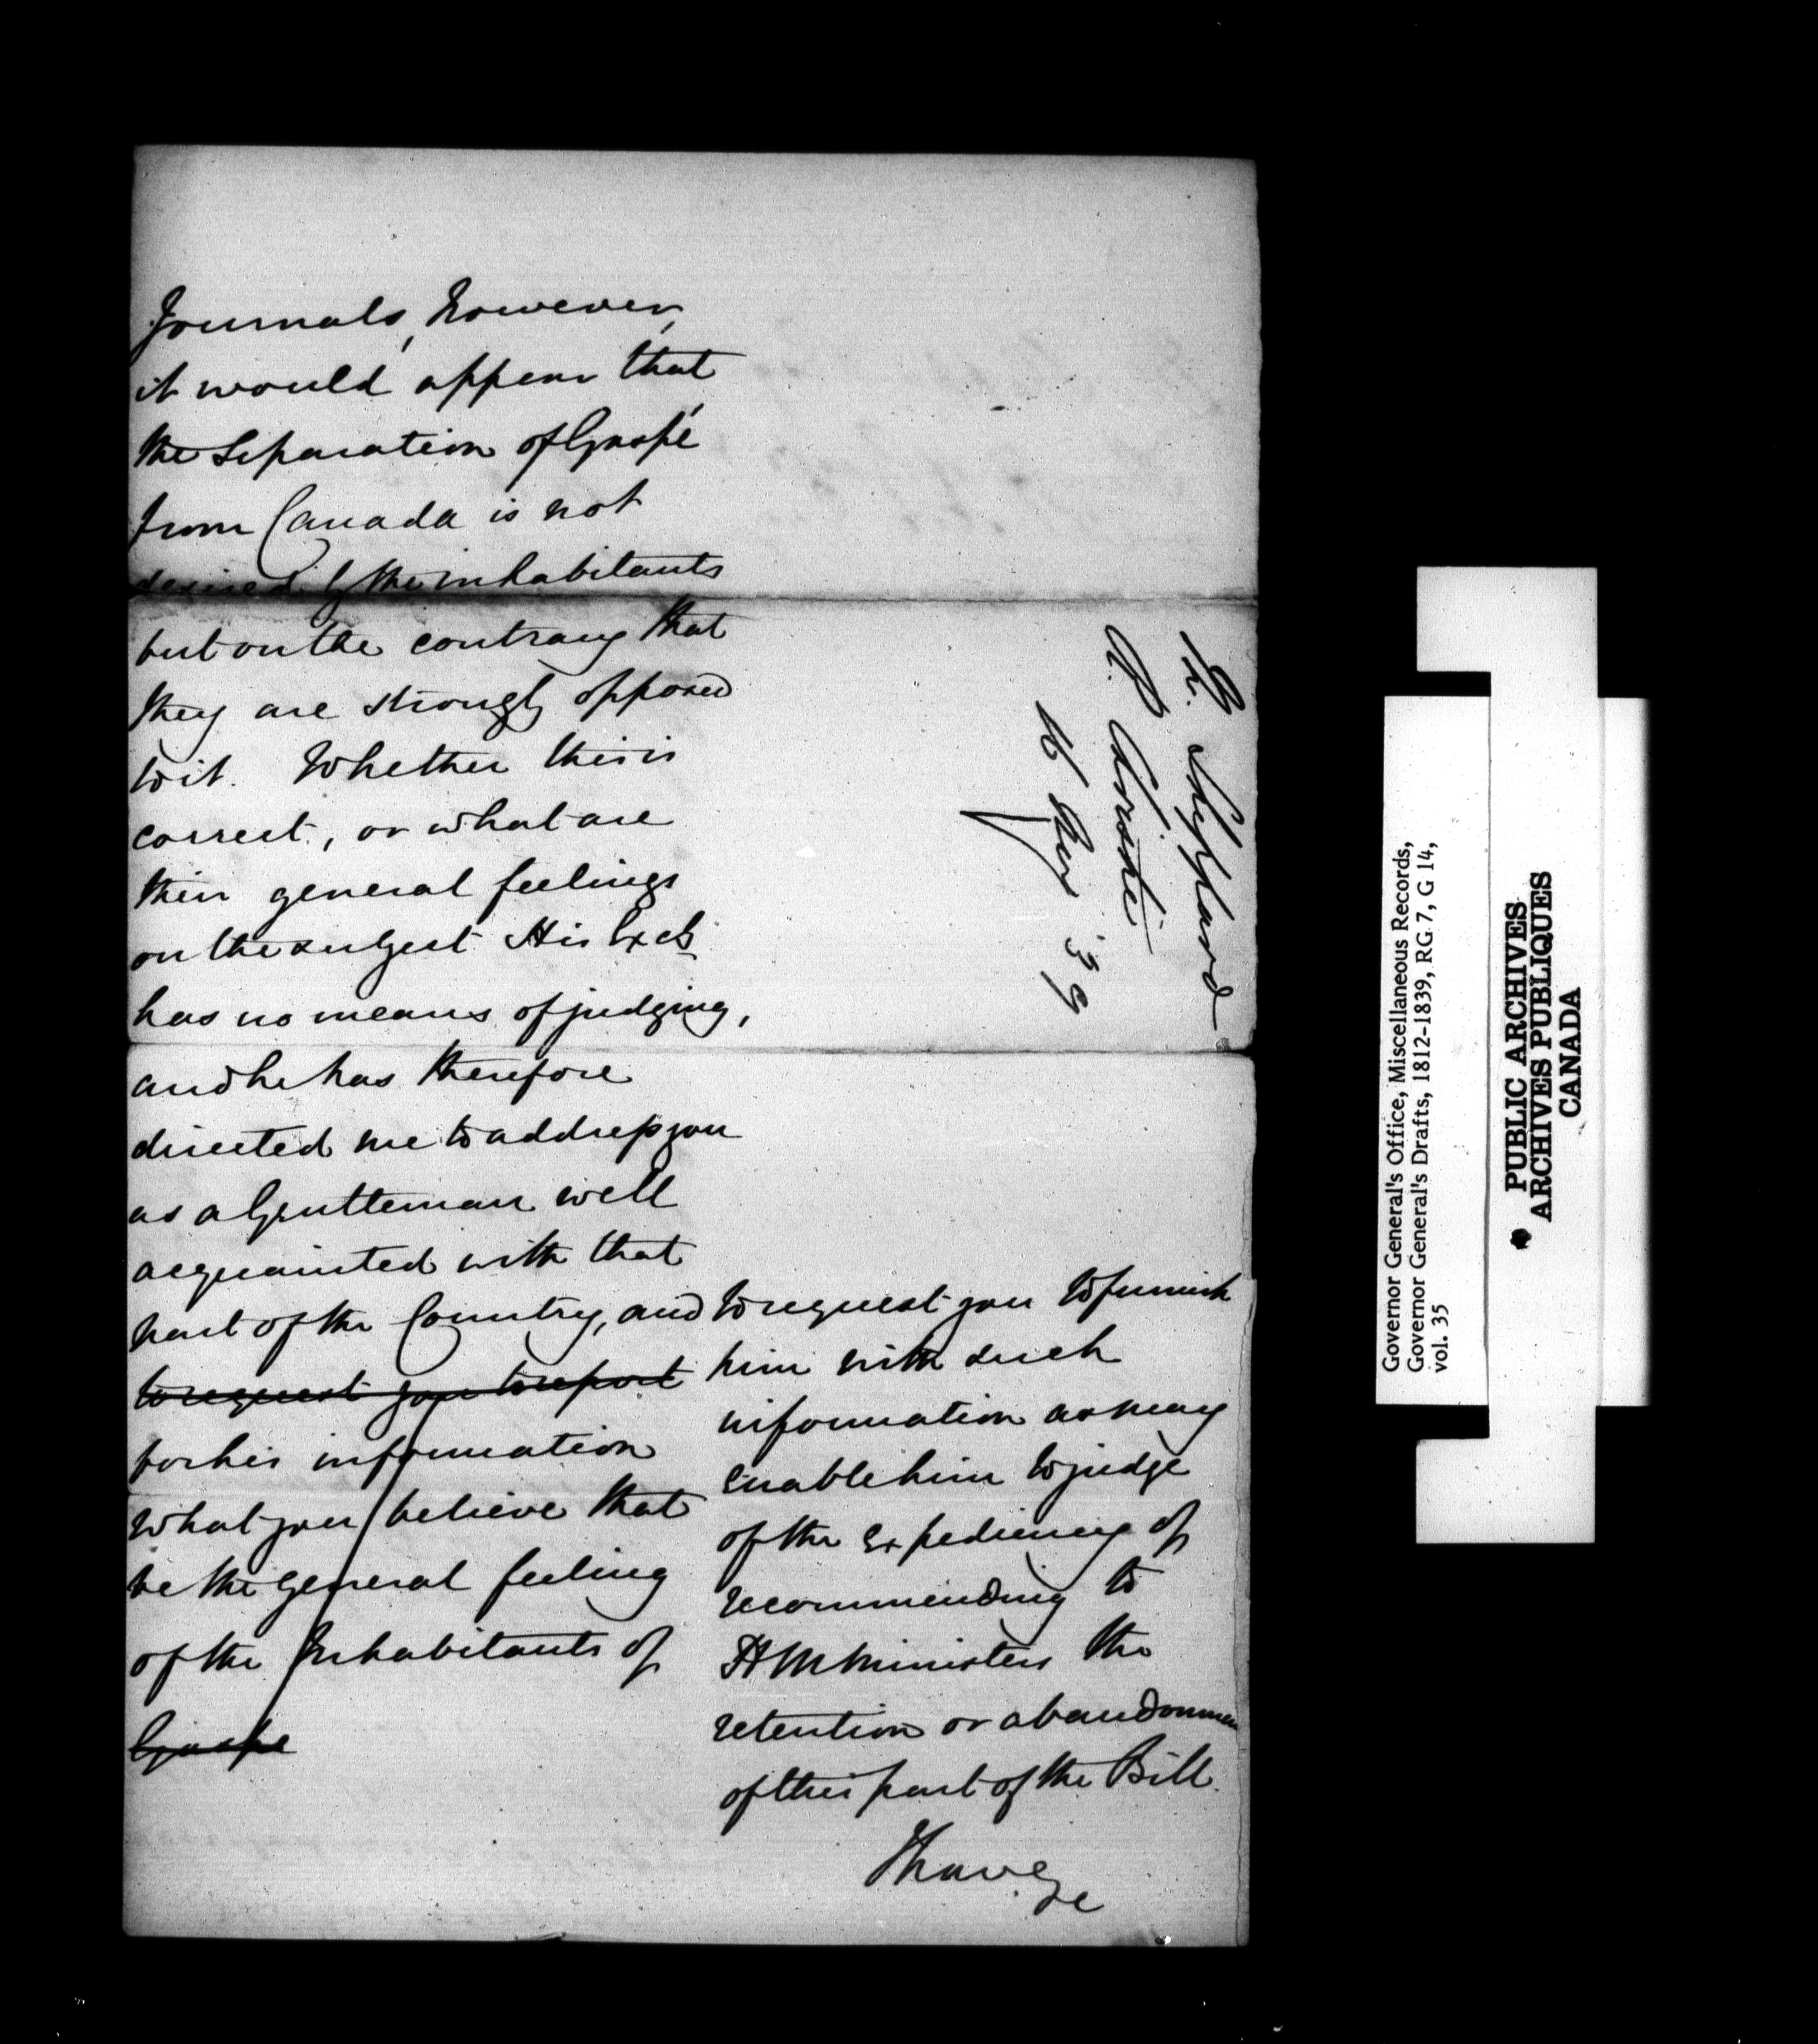 Journals, however,
it would appear that
the Separation of Gaspé
from Canada is not
desired by the inhabitants
but on the contrary that
they are strongly opposed
to it. Whether this is
correct, or what are
their general feelings
on the subject His Excy
has no means of judging,
and he has therefore
directed me to address you
as a Gentleman well
acquainted with that
part of the Country, and
to request you to report
for his information
what you believe that
be the general feeling
of the Inhabitants of
Gaspe
to request you to furnish
him with such
information as may
enable him to judge
of the expediency of
recommending to
H M Ministers the
retention or abandonmen
of this part of the Bill.
I have
&c
W. Sheppard
D. Christie
16 Nov '39
Governor General's Office, Miscellaneous Records,
Governor General's Drafts, 1812-1839, RG 7, G 14,
vol. 35
PUBLIC ARCHIVES
ARCHIVES PUBLIQUES
CANADA